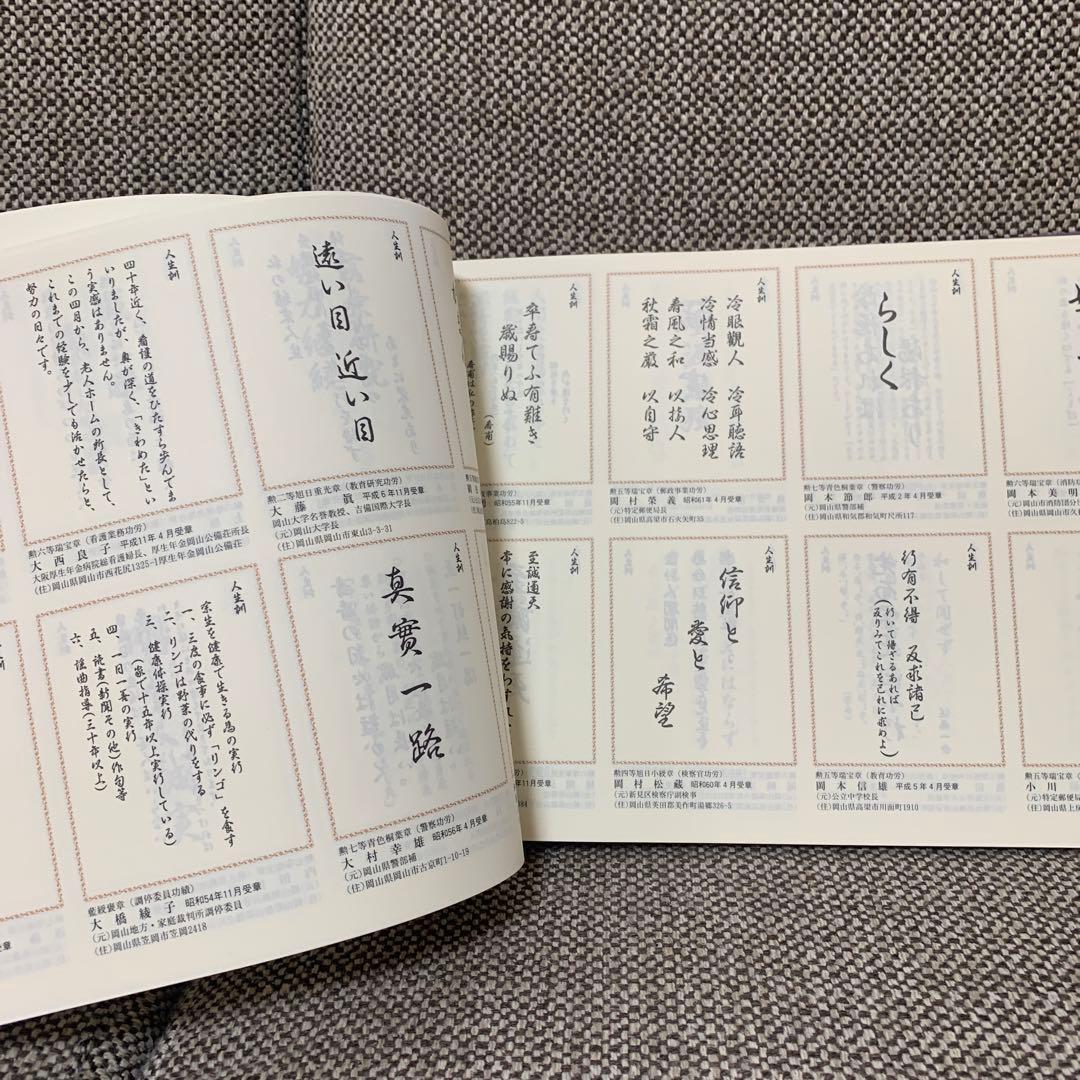 人生訓
遠い目 近い目
勲二等旭日重光章（教育研究功労）
大藤 眞 平成6年11月受章
岡山大学名誉教授、吉備国際大学長
（元）岡山大学長
（住）岡山県岡山市東山3-3-31
人生訓
四十年近く、看護の道をひたすら歩んでま
いりましたが、奥が深く、「きわめた」とい
う実感はありません。
この四月から、老人ホームの所長として、
これまでの経験を少しでも活かせたらと、
努力の日々です。
勲六等瑞宝章（看護業務功労）
大西良子 平成11年4月受章
大阪厚生年金病院総看護婦長、厚生年金岡山公備荘所長
（住）岡山県岡山市西花尻1325-1厚生年金岡山公備荘
人生訓
真實一路
勲七等青色桐葉章（警察功労）
大村幸雄 昭和56年4月受章
（元）岡山県警部補
（住）岡山県岡山市古京町1-10-19
人生訓
余生を健康で生きる為の実行
一、三度の食事に必ず「リンゴ」を食す
二、リンゴは野菜の代りをする
三、健康体操実行
（家で十五年以上実行している）
四、一日一善の実行
五、読書（新聞その他）作句等
六、謡曲指導（三十年以上）
藍綬褒章（調停委員功績）
大橋綾子 昭和54年11月受章
（元）岡山地方・家庭裁判所調停委員
（住）岡山県笠岡市笠岡2418
人生訓
六等瑞宝章（消防功
岡本美明
（元）岡山市消防団分
（住）岡山県岡山市久
人生訓
らしく
勲七等青色桐葉章（警察功労）
岡本節郎 平成2年4月受章
（元）岡山県警部補
（住）岡山県和気郡和気町尺所117
人生訓
冷眼觀人 冷耳聴語
冷情当感 冷心思理
春風之和 以接人
秋霜之厳 以自守
勲五等瑞宝章（郵政事業功労）
岡村榮義 昭和61年4月受章
（元）特定郵便局長
（住）岡山県高梁市石火矢町35
人生訓
卒寿てふ有難き
歳賜りぬ
昭和55年11月受章
822-5
人生訓
勲五等瑞宝章
小川
（元）特定郵便局
人生訓
行有不得 反求諸己
（行いて得ざるあれば
反りみてこれを己れに求めよ）
勲五等瑞宝章（教育功労）
岡本信雄 平成5年4月受章
（元）公立中学校長
（住）岡山県高梁市川面町1910
人生訓
信仰と
愛と
希望
勲四等旭日小綬章（検察官功労）
岡村松蔵 昭和60年4月受章
（元）新見区検察庁副検事
（住）岡山県英田郡美作町湯郷326-5
人生訓
至誠通天
常に感謝の気持をわすれ